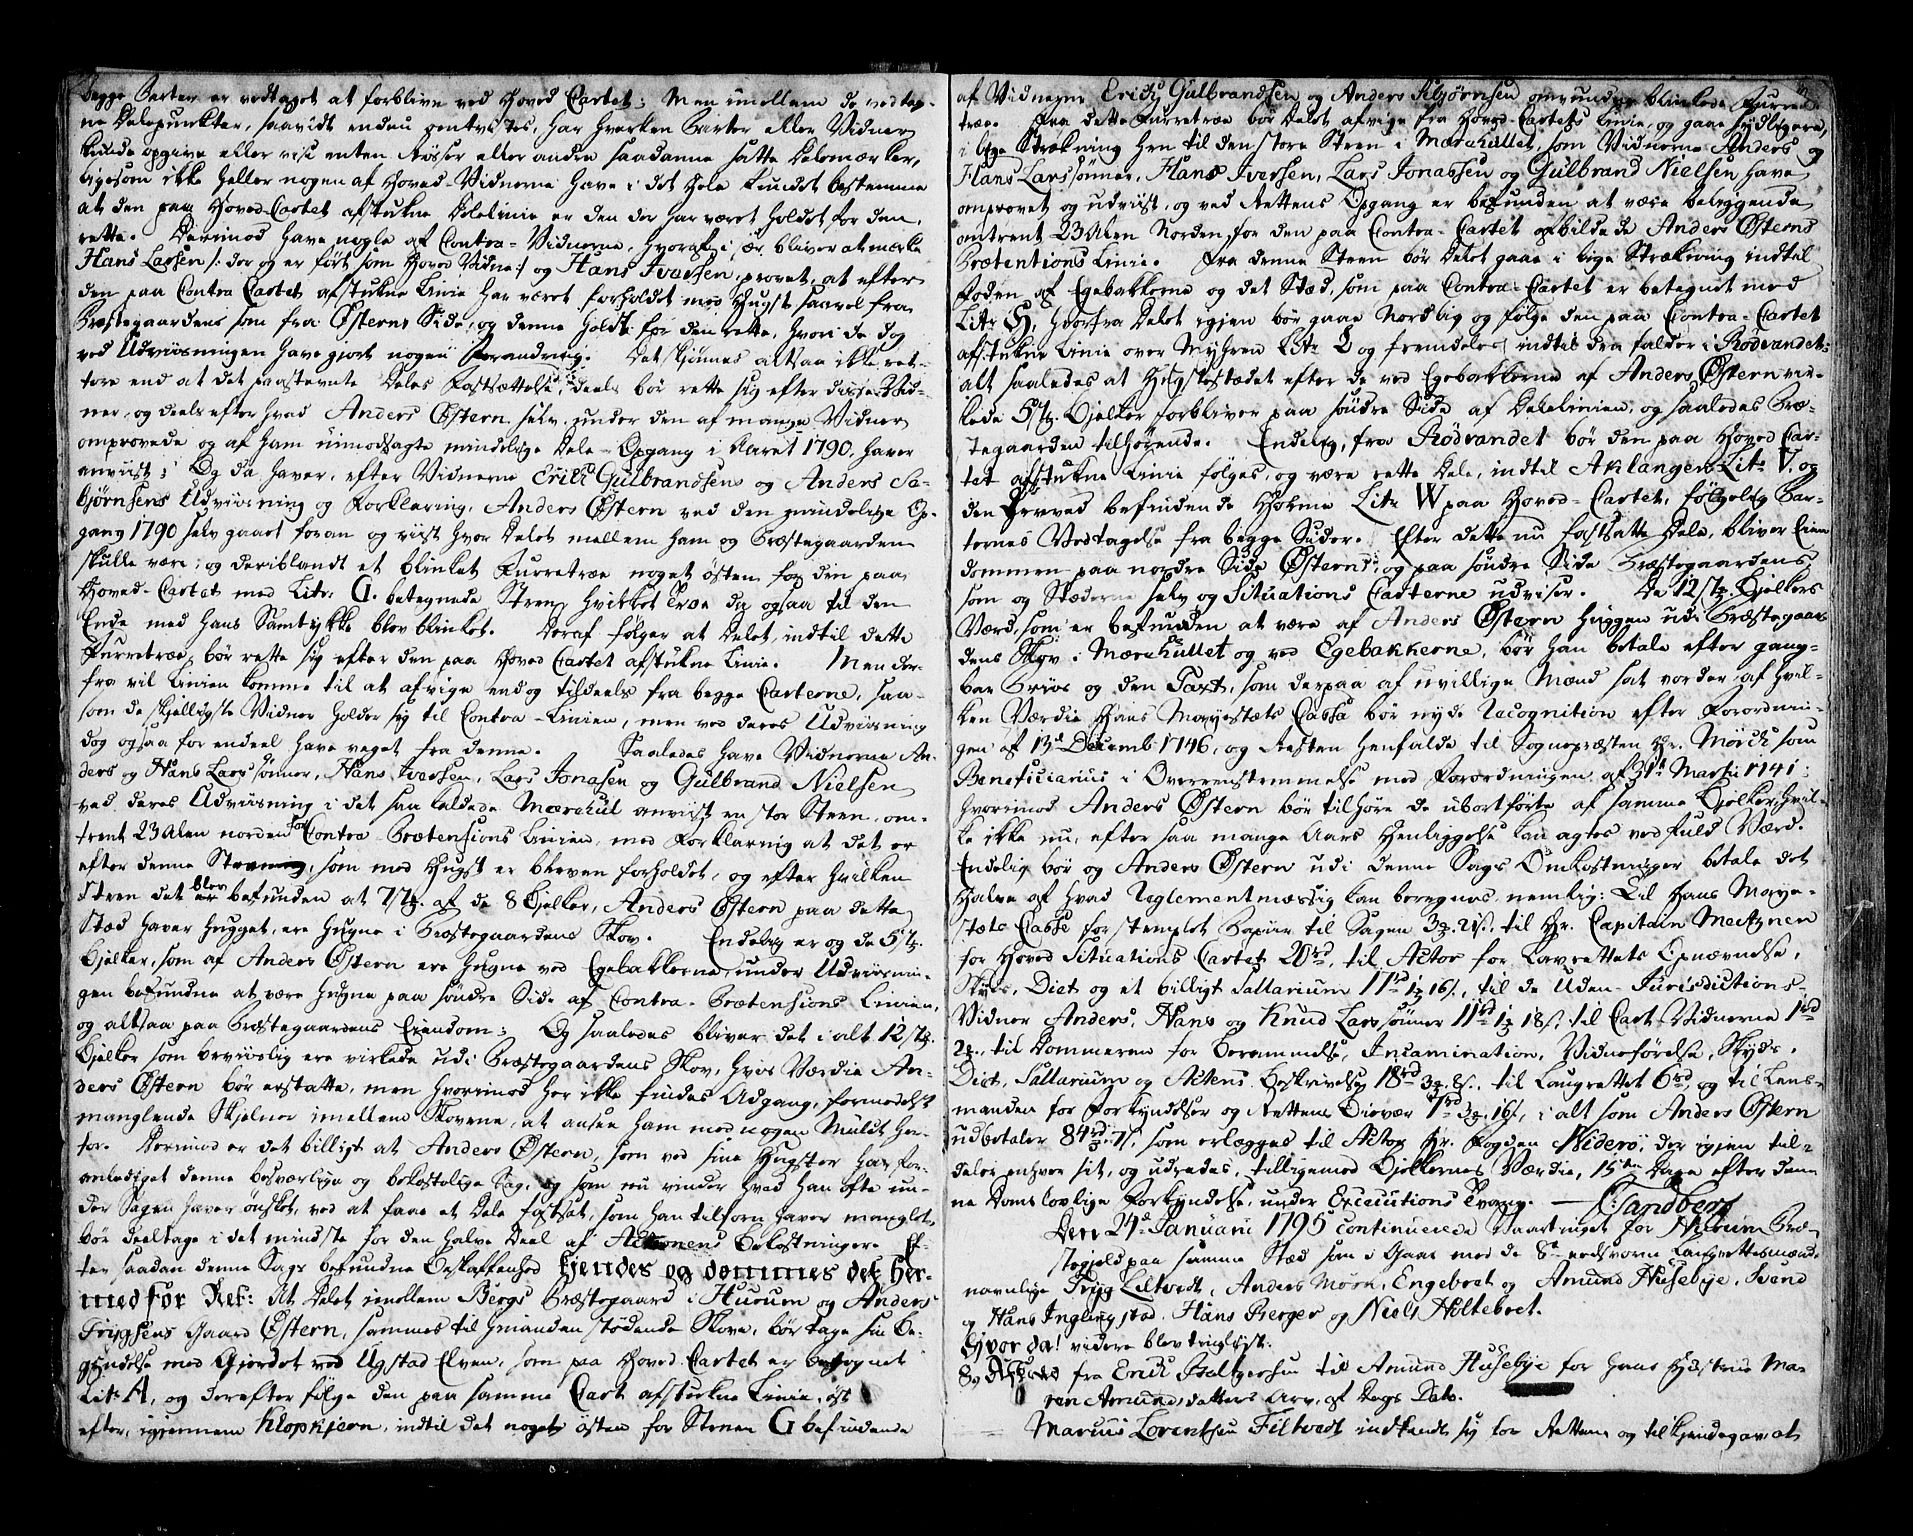 begge Parter er vedtaget at forblive ved Hoved Cartet; Men imellem de vedtag-
ne Delepunkter, saavidt endnu omtvistes, har hverken Parter eller Vidner
kunde opgive eller vise enten Røser eller andre saadanne satte Delemærker,
ligesom ikke heller nogen af Hoved-Vidnerne have i det Hele kundet bestemme
at den paa Hoved-Cartet afstukne Delelinie er den der har været holdet for den
rette. Derimod have nogle af Contra-Vidnerne, hvoraf i sær bliver at mærke
Hans Larsen /: der og er ført som Hoved Vidne :/ og Hans Iversen, provet, at efter
den paa Contra Cartet afstukne Linie har været forholdt med Hugst saavel fra
Præstegaardens som fra Østerns Side, og denne holdt for den rette, hvori de dog
ved Udviisningen have gjort nogen Forandring. Det skjønnes altsaa ikke ret-
tere end at det paastevnte Deles Fastsættelse, deels bør rette sig efter disse Vid-
ner, og deels efter hvad Anders Østern selv, under den af mange Vidner
omprovede og af ham uimodsagte mindelige Dele-Opgang i Aaret 1790, haver
anviist; Og da haver, efter Vidnerne Erich Gulbrandsens og Anders As-
bjørnsens Udviisning og Forklaring, Anders Østern ved den mindelige Op-
gang 1790 selv gaaet foran og viist hvor Delet mellem ham og Præstegaarden
skulle være; og deriblandt et blinket Furretræe noget østen for den paa
Hoved-Cartet med Litr. G. betegnede Steen, hvilket Træe da ogsaa til den
Ende med hans Samtykke blev blinket. Deraf følger at Delet, indtil dette
Furretræe, bør rette sig efter den paa Hoved Cartet afstukne Linie. Men der-
fra vil Linien komme til at afvige endog tildeels fra begge Carterne, saa-
som de skjelligste Vidner holder sig til Contra-Linien, men ved deres Udviisning
dog ogsaa for endeel have veget fra denne. Saaledes have Vidnerne An-
ders og Hans Lars sønner, Hans Iversen, Lars Jonasen og Gulbrand Nielsen
ved deres Udviisning i det saa kaldede Mærehul anviist en stor Steen, om-
trent 23 Alen norden for Contra-Prætensions Linien, med Forklaring at det er
efter denne Steen, som med Hugst er bleven forholdet, og efter hvilken
Steen det blev befunden at 7 stk. af de 8 Bjelker, Anders Østern paa dette
Stæd haver hugget, ere hugne i Præstegaardens Skov. Endelig er og de 5 stk.
Bjelker, som af Anders Østern ere hugne ved Egebakkerne, under Udviisnin-
gen befundne at være hugne paa søndre Side af Contra-Prætensions Linien,
og altsaa paa Præstegaardens Eiendom; Og saaledes bliver det i alt 12 stk.
Bjelker som beviislig ere virkede udi Præstegaardens Skov, hvis Værdie An-
ders Østern bør erstatte, men hvorimod her ikke findes Adgang, formedelst
manglende Skjelner imellem Skovene, at ansee ham med nogen Mulct her-
for. Derimod er det billigt at Anders Østern, som ved sine Hugster har for-
anlediget denne besværlige og bekostelige Sag, og som nu vinder hvad han ofte un-
der Sagen haver ønsket, ved at faae et Dele fastsat, som han tilforn haver manglet,
bør deeltage i det mindste for den halve Deel af Actionens Bekostninger. Ef-
ter saadan denne Sags befundne Beskaffenhed kjendes og dømmes det her-
med for Ret: At Delet imellem Bergs Præstegaard i Hurum og Anders
Trygsens Gaard Østern, sammes til hinanden stødende Skove, bør tage sin Be-
gyndelse med Gjerdet ved Ugstad Elven, som paa Hoved-Cartet er betegnet
Litr. A, og derefter følge den paa samme Cart afstukne Linie, øst
efter, igjennem Klopkjern, indtil det noget østen for Stenen G befindende
af Vidnerne Erich Gulbrandsen og Anders Asbjørnsen omvundne blinkede Furre-
træe. Fra dette Furretræe bør Delet afvige fra Hoved-Cartets Linie, og gaae sydligere,
i lige Strækning hen til den store Steen i Mærehullet, som Vidnerne Anders og
Hans Lars sønner, Hans Iversen, Lars Jonassen og Gulbrand Nielsen have
omprovet og udviist, og ved Rettens Opgang er befunden at være beliggende
omtrent 23 Alen Norden for den paa Contra-Cartet afbildede Anders Østerns
Prætentions Linie. Fra denne Steen bør Delet gaae i lige Strækning indtil
Foden af Egebakkerne og det Stæd, som paa Contra-Cartet er betegnet med
Litr. H, hvorfra Delet igjen bør gaae Nordlig og følge den paa Contra-Cartet
afstukne Linie over Myhren Litr. L og fremdeles indtil den falder i Rødvandet:
alt saaledes at Hugstestædet efter de ved Egebakkerne af Anders Østern vir-
kede 5 stk. Bjelker forbliver paa søndre Side af Delelinien, og saaledes Præ-
stegaarden tilhørende. Endelig, fra Rødvandet bør den paa Hoved Car-
tet afstukne Linie følges, og være rette Dele, indtil Aklangen Litr. V, og
den derved befindende Holme Litr. W paa Hoved-Cartet, følgelig Par-
ternes Vedtagelse fra begge Sider. Efter dette nu fastsatte Dele, bliver Eien
dommen paa nordre Side Østerns, og paa søndre Side Præstegaardens,
som og Stæderne selv og Situations Carterne udviser. De 12 stk. Bjelkers
Værd, som er befunden at være af Anders Østern huggen udi Præstegaar-
dens Skov i Mærehullet og ved Egebakkerne, bør han betale efter gang-
bar Priis og den Taxt, som derpaa af uvillige Mænd sat vorder, af hvil-
ken Værdie Hans Mayestæts Cassa bør nyde Recognition efter Forordnin-
gen af 13de Decemb. 1746, og Resten henfalde til Sognepræsten Hr. Mørch som
Beneficiarius i Overeensstemmelse med Forordningen af 31te Martii 1741;
hvorimod Anders Østern bør tilhøre de ubortførte af samme Bjelker, hvil-
ke ikke nu, efter saa mange Aars Henliggelse kan agtes ved fuld Værd.
Endelig bør og Anders Østern udi denne Sags Omkostninger betale det
Halve af hvad Reglementmæssig kan beregnes, nemlig: Til Hans Maye-
stæts Casse for stemplet Papiir til Sagen 3 . 21 s., til Hr. Capitain Mectznen
for Hoved Situations Cartet 20 rd, til Actor for Lavrettets Opnævnelse,
Skyds, Diet og et billigt Sallarium 11 rd 1 . 16 s., til de Uden-Jurisdictions-
Vidner Anders, Hans og Knud Lars sønner 11 rd 1 . 18 s., til Cart-Vidnerne 1 rd
2 ., til Dommeren for Berammelse, Incamination, Vidneførelse, Skyds,
Diet, Sallarium og Actens Beskrivelse 18 rd 3 . 8 s., til Laugrettet 6 rd, og til Lens-
manden for Forkyndelser og Rettens Bievær 7 rd 3 . 16 s, i alt som Anders Østern
udbetaler 84 rd 7 s, som erlægges til Actor Hr. Fogden Niderø, der igjen til-
deler enhver sit, og udredes, tilligemed Bjelkernes Værdie, 15ten Dage efter den-
ne Doms lovlige Forkyndelse, under Executions Tvang. — C. Sandberg
Den 24de Januarii 1795 continuerede Vaartinget for Hurum Præ-
stegjeld paa samme Stæd som i Gaar med de 8te eedsvorn Laugrettesmænd,
navnlige Tryg Liltvedt, Anders Mørk, Engebret og Amund Husebye, Svend
og Hans Inglingstad, Hans Berger og Niels Holtebret.
Hvor da! videre blev tinglyst:
8. Afkald fra Erich Ballgersen til Amund Husebye for hans Hustrue Ma-
ren Amundsdatters Arv, af Dags Dato.
Marius Lorentsen Filtvedt indfandt sig for Retten og tilkjendegav, at